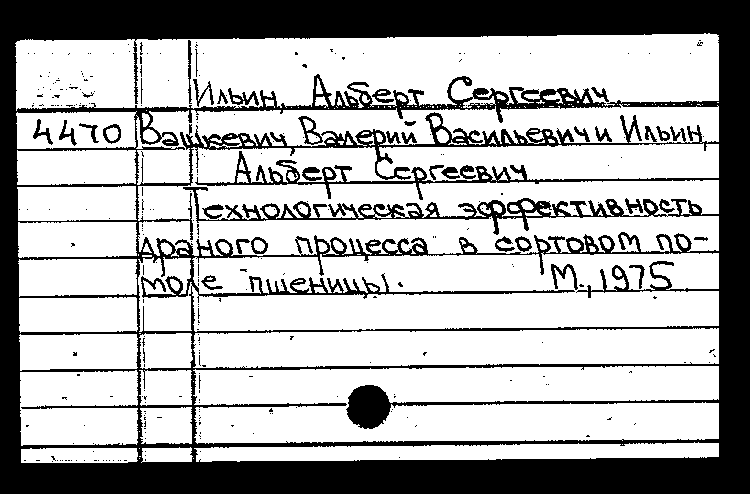 Ильин, Альберт Сергеевич
4470 Вашкевич, Валерий Васильевич и Ильин,
Альберт Сергеевич.
Технологическая эффективность
драного процесса в сортовом по-
моле пшеницы. М., 1975